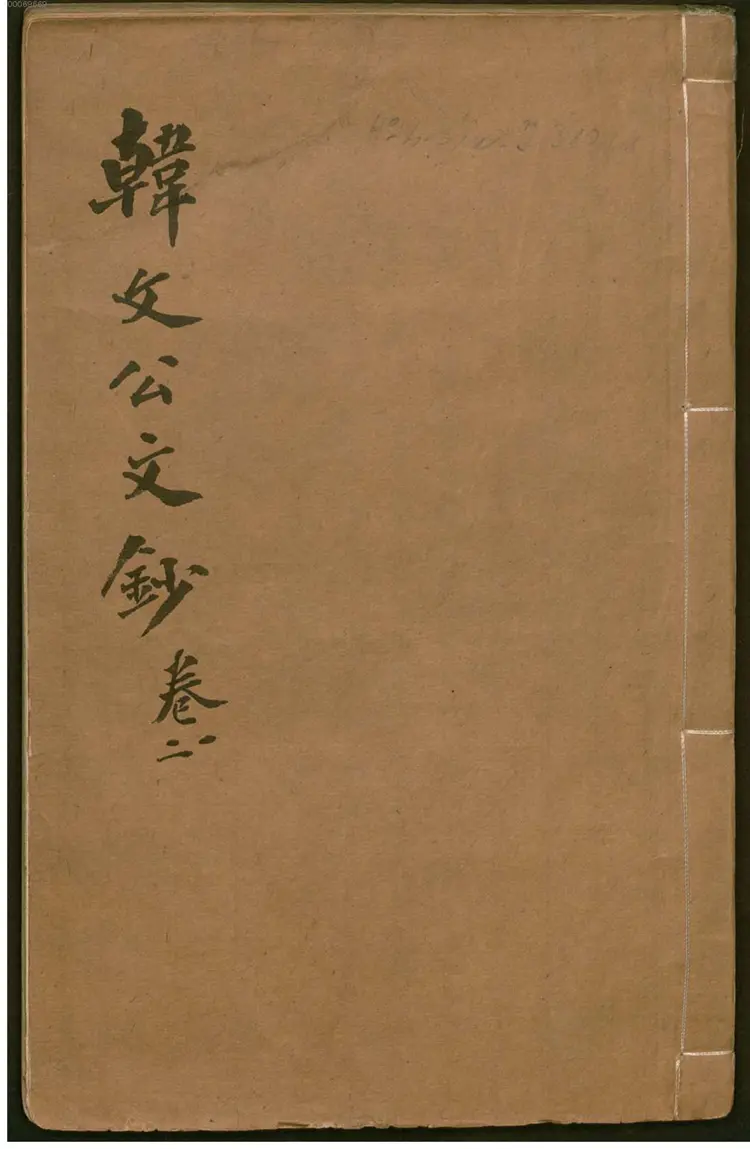 00069669
韓文公文鈔
卷二